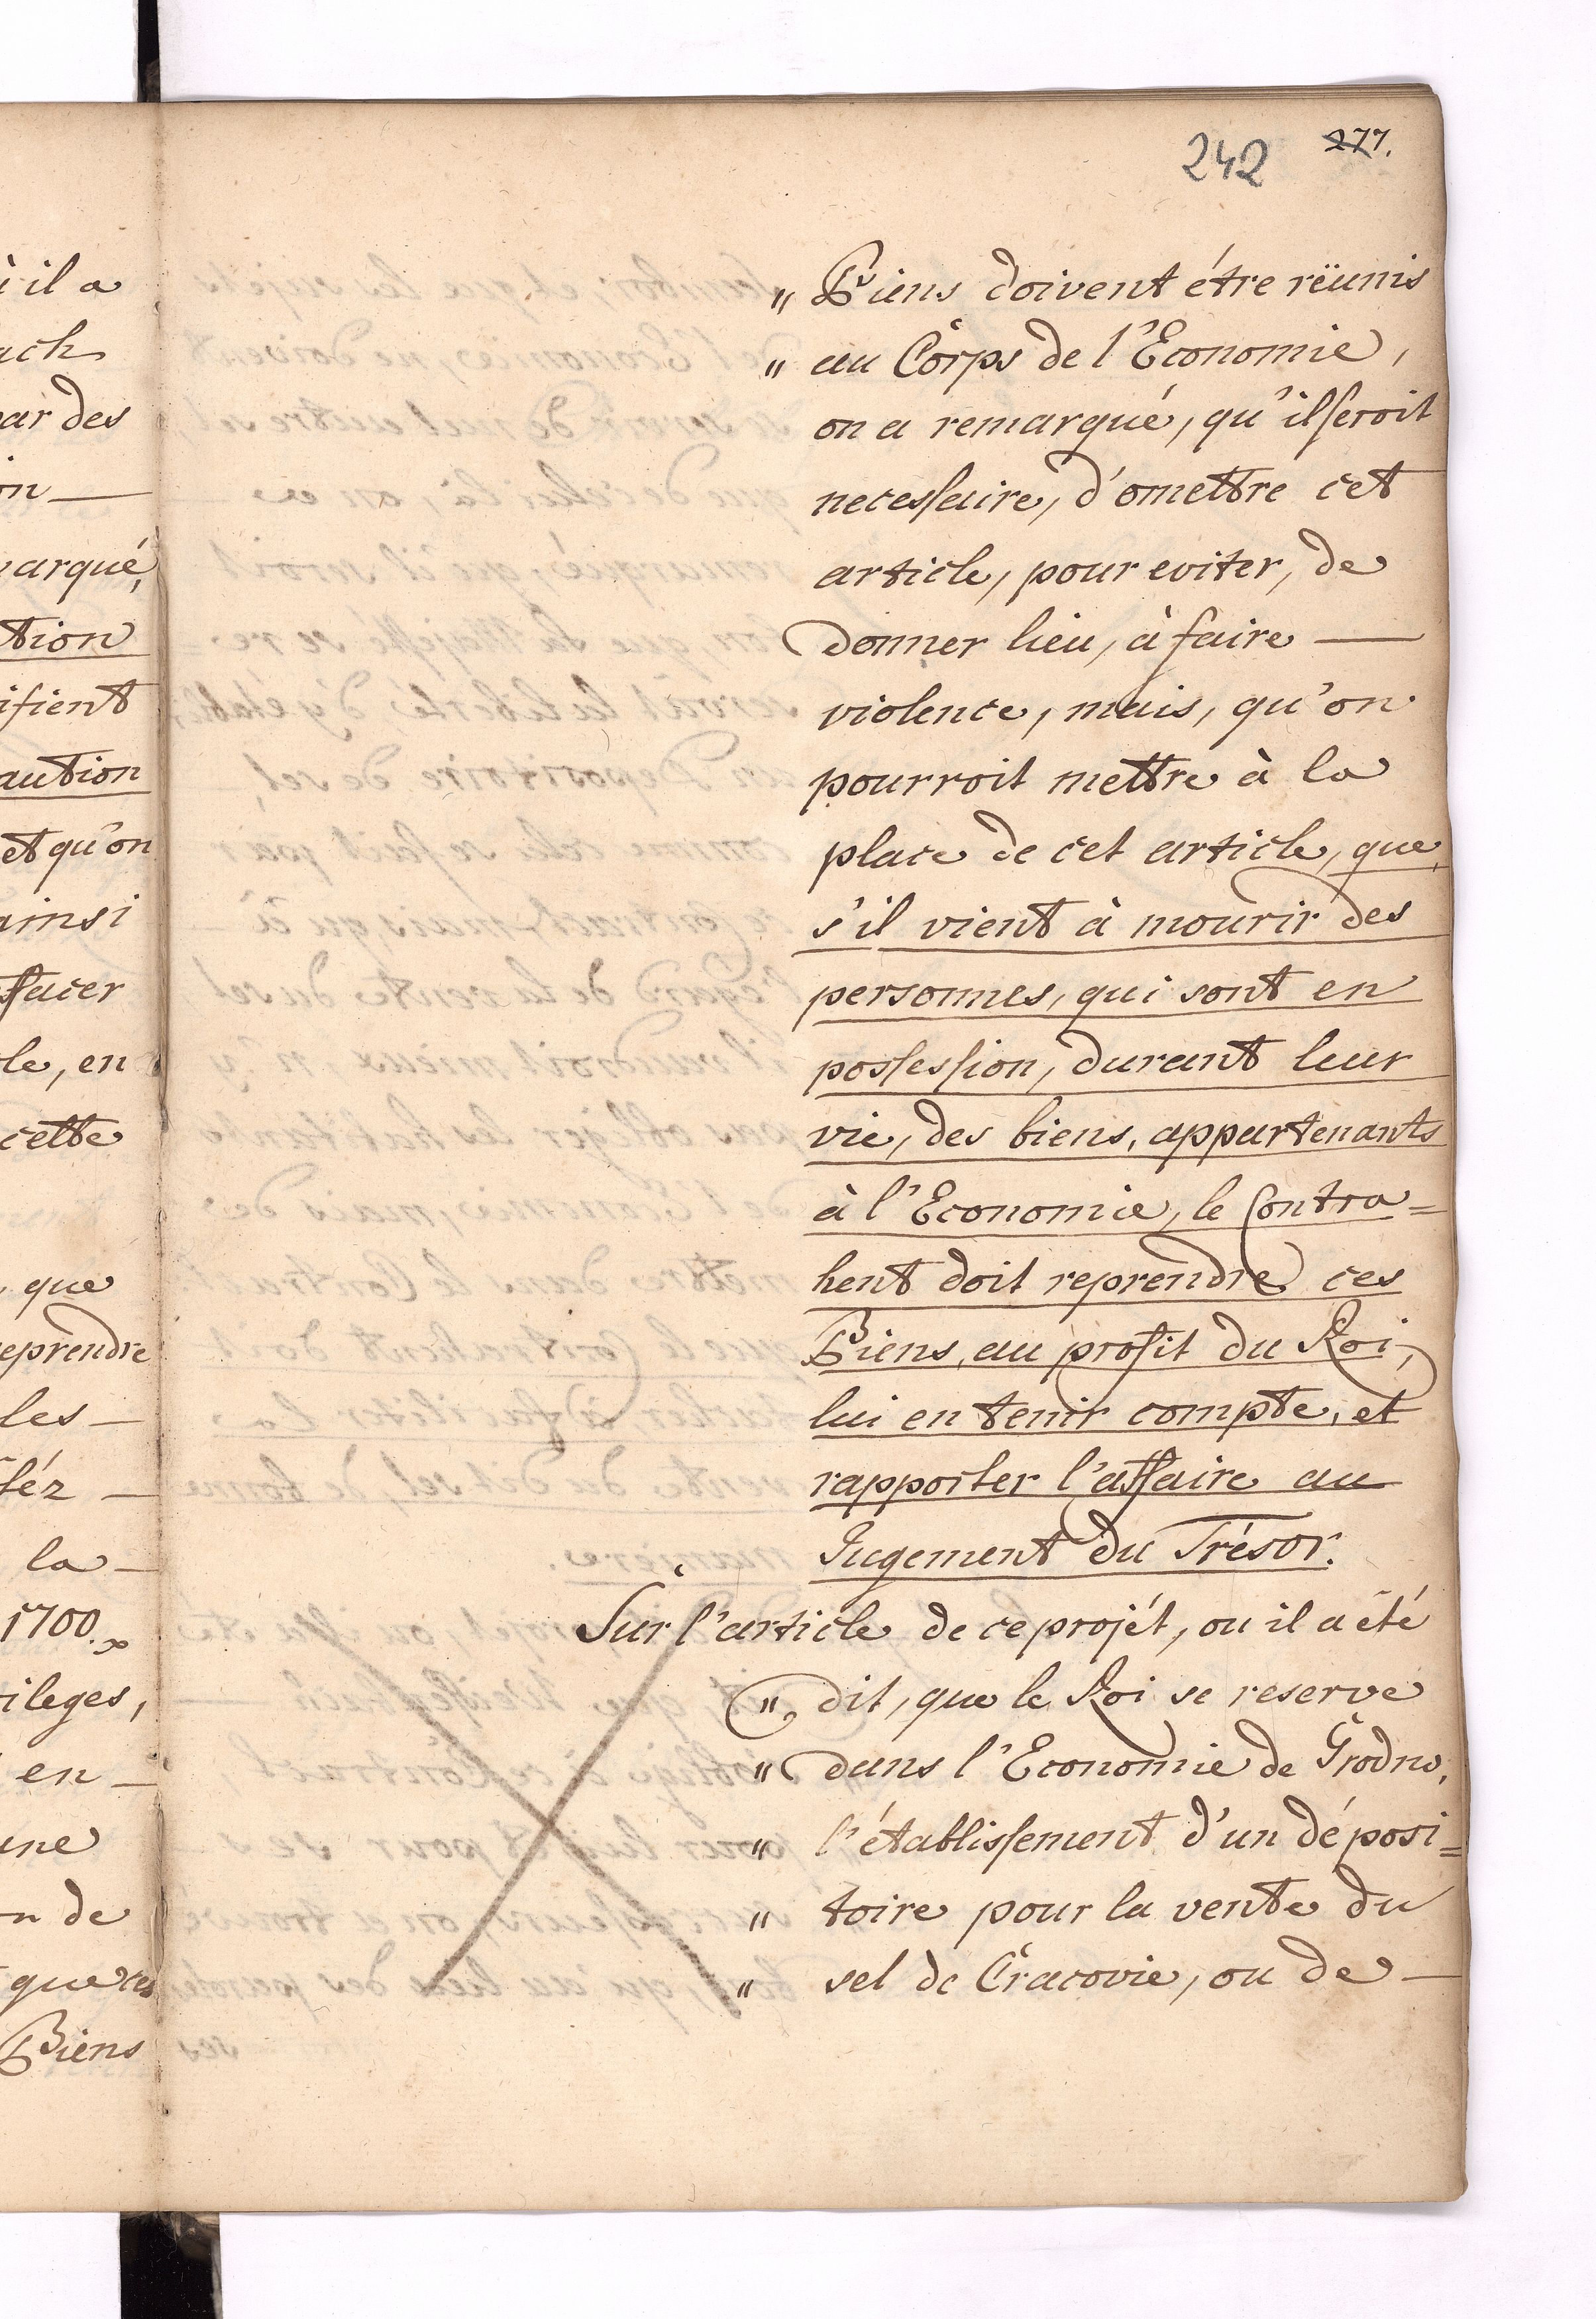 242 277.
„ Biens doivent étre rëunis
„ au Corps de l'Economie,
on a remarqué, qu'il seroit
necessaire, d'omettre cet
article, pour eviter, de
donner lieu, à faire —
violence, mais, qu'on
pourroit mettre à la
place de cet article, que
s'il vient à mourir des
personnes, qui sont en
possession, durant leur
vie, des biens, appartenants
à l'Economie, le Contra=
hent doit reprendre ces
Biens, au profit du Roi,
lui en tenir compte, et
rapporter l'affaire au
Jugement du Trésor.
Sur l'article de ce projét, ou il a été
„ dit, que le Roi se reserve
„ dans l'Economie de Grodno,
„ l'établissement d'un déposi=
„ toire pour la vente du
„ sel de Cracovie, ou de —
i il a
ach
par des
on —
marqué,
tion
ifient
aution
et qu'on
ainsi
ffacer
le, en
cette
que
reprendre
les —
la —
1700.
ileges,
en —
une
n de
que ces
Biens